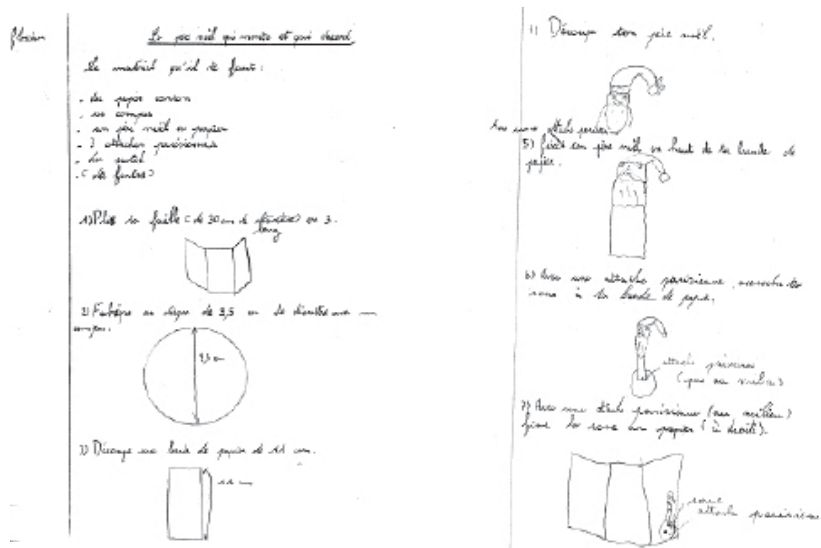 Le père noël qui monte et qui descend.
Le matériel qu'il te faut :
. du papier canson
. un compas
. un père noël en papier
. 3 attaches parisiennes
1) Plie ta feuille (de 30 cm de long) en 3.
2) Fabrique un disque de 9,5 cm de diamètre avec un
compas.
9,5 cm
3) Découpe une bande de papier de 11 cm.
11 cm
Découpe ton père noël.
Avec une attache parisienne
5) fixe ton père noël en haut de ta bande de
papier.
6) Avec une attache parisienne, accroche ta
roue à ta bande de papier.
attache parisienne
(pas au milieu)
7) Avec une attache parisienne (au milieu)
fixe la roue au papier (à droite).
roue
attache parisienne